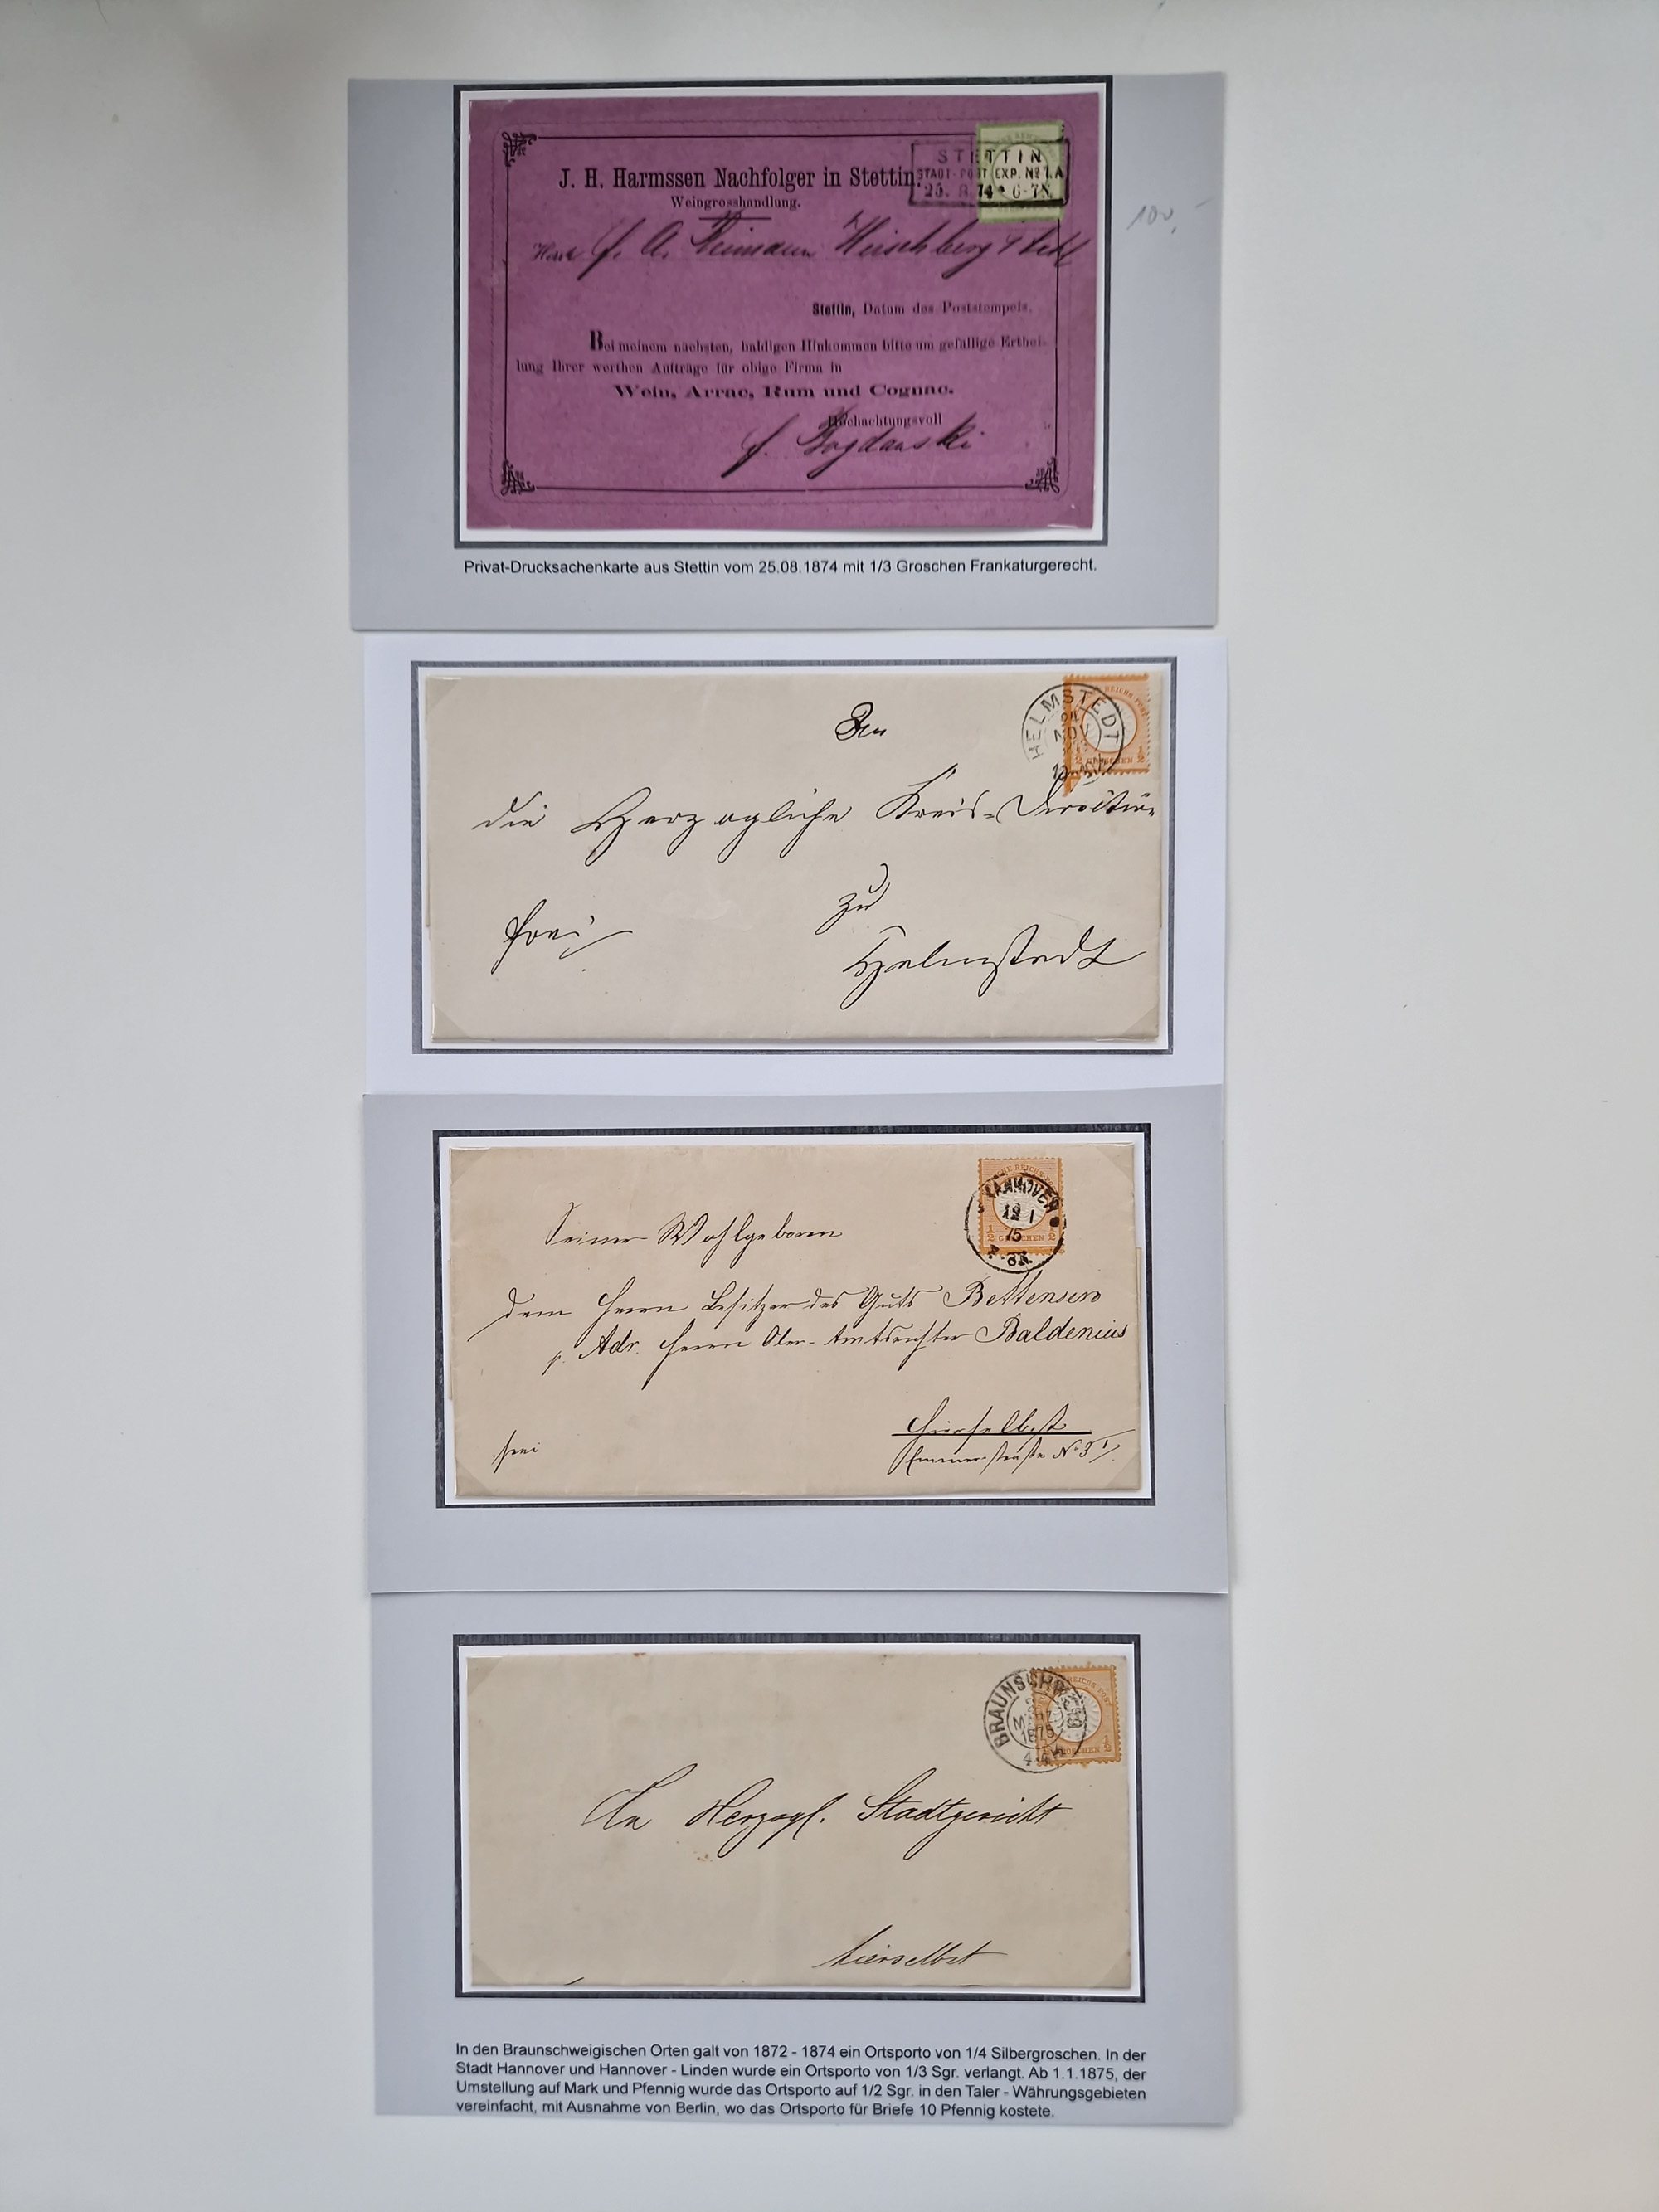 J. H. Harmssen Nachfolger in Stettin.
Weingrosshandlung.
STETTIN
STADT-POST-EXP. No 1.A
25. 8. 74 6-7N.
100,-
Herrn f. A. Reimann Hirschberg
Stettin, Datum des Poststempels.
Bei meinem nächsten, baldigen Hinkommen bitte um gefällige Erthei-
lung Ihrer werthen Aufträge für obige Firma in
Wein, Arrac, Rum und Cognac.
Hochachtungsvoll
f. Bogdanski
Privat-Drucksachenkarte aus Stettin vom 25.08.1874 mit 1/3 Groschen Frankaturgerecht.
HELMSTEDT
NOV
REICHS-POST
1/2 GROSCHEN 1/2
An
die Herzogliche Kreis-Direction
frei
zu
Helmstedt
HANNOVER
12 1
75
REICHS
1/2 GROSCHEN 1/2
Seiner Wohlgeboren
dem Herrn Besitzer des Guts Bettensen
p. Adr. Herrn Ober-Amtsrichter Baldenius
Hierselbst
frei
No 3 I
BRAUNSCHWEIG
MRZ
1875
REICHS-POST
GROSCHEN 1/2
An Herzogl. Stadtgericht
hierselbst
In den Braunschweigischen Orten galt von 1872 - 1874 ein Ortsporto von 1/4 Silbergroschen. In der
Stadt Hannover und Hannover - Linden wurde ein Ortsporto von 1/3 Sgr. verlangt. Ab 1.1.1875, der
Umstellung auf Mark und Pfennig wurde das Ortsporto auf 1/2 Sgr. in den Taler - Währungsgebieten
vereinfacht, mit Ausnahme von Berlin, wo das Ortsporto für Briefe 10 Pfennig kostete.